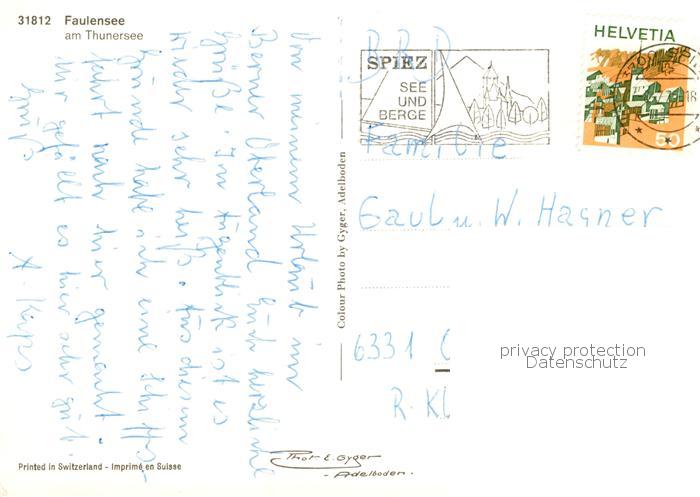 31812 Faulensee
am Thunersee
Von meinem Urlaub im
Berner Oberland Euch herzliche
Grüße. Im Augenblick ist es
wieder sehr heiß. Aus diesem
Grunde habe ich eine Schiff-
fahrt nach hier gemacht.
Mir gefällt es hier sehr gut.
Gruß
A.
BRD
SPIEZ
SEE
UND
BERGE
HELVETIA
50
Familie
Gaul u. W. Hagner
6331
R. Kl
privacy protection
Datenschutz
Colour Photo by Gyger, Adelboden
Phot E. Gyger
- Adelboden.
Printed in Switzerland - Imprimé en Suisse